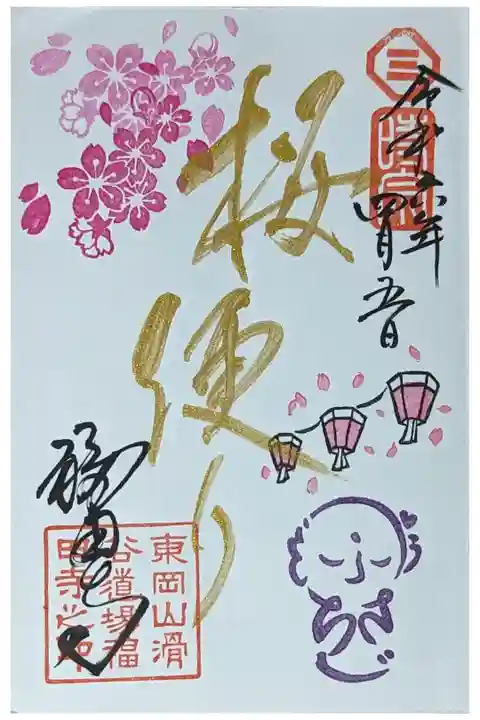 三
時宗
令和六年
四月五日
桜便り
福田寺
東岡山滑
谷道場福
田寺之印